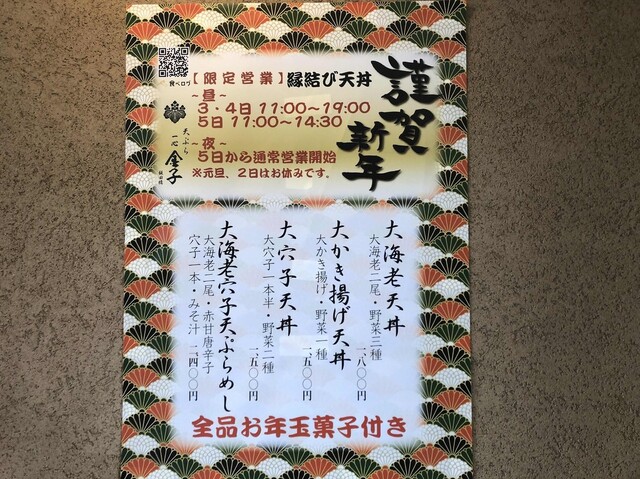 謹賀
新年
【限定営業】縁結び天丼
~昼~
3・4日 11:00~19:00
5日 11:00~14:30
~夜~
5日から通常営業開始
※元旦、2日はお休みです。
食べログ
天ぷら
一心 金子
大海老天丼
大海老二尾・野菜三種
一、八〇〇円
大かき揚げ天丼
大かき揚げ・野菜一種
一、五〇〇円
大穴子天丼
大穴子一本半・野菜二種
一、五〇〇円
大海老穴子天ぷらめし
大海老二尾・赤甘唐辛子
穴子一本・みそ汁 二、四〇〇円
全品お年玉菓子付き